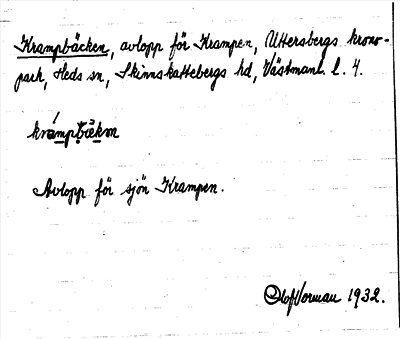 Krampbäcken, avlopp för Krampen, Uttersbergs krono-
park, Heds sn, Skinnskattebergs hd, Västmanl. l. 4.
Avlopp för sjön Krampen.
Olof Vorman 1932.